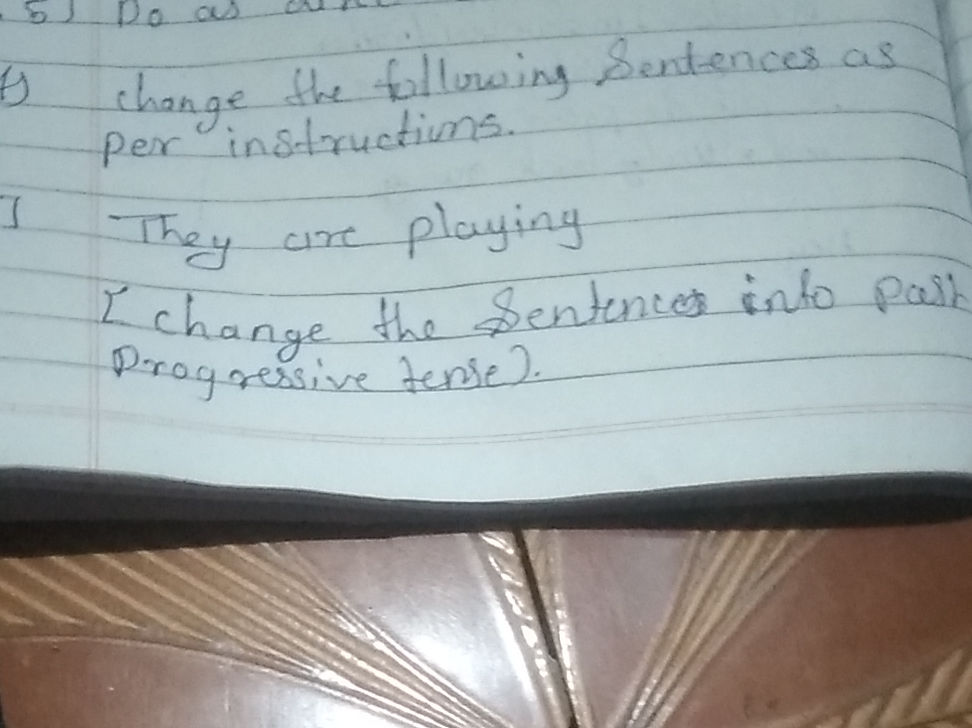 5) Do as
f) change the following Sentences as
per instructions.
I They are playing
[ change the Sentences into past
Progressive tense).